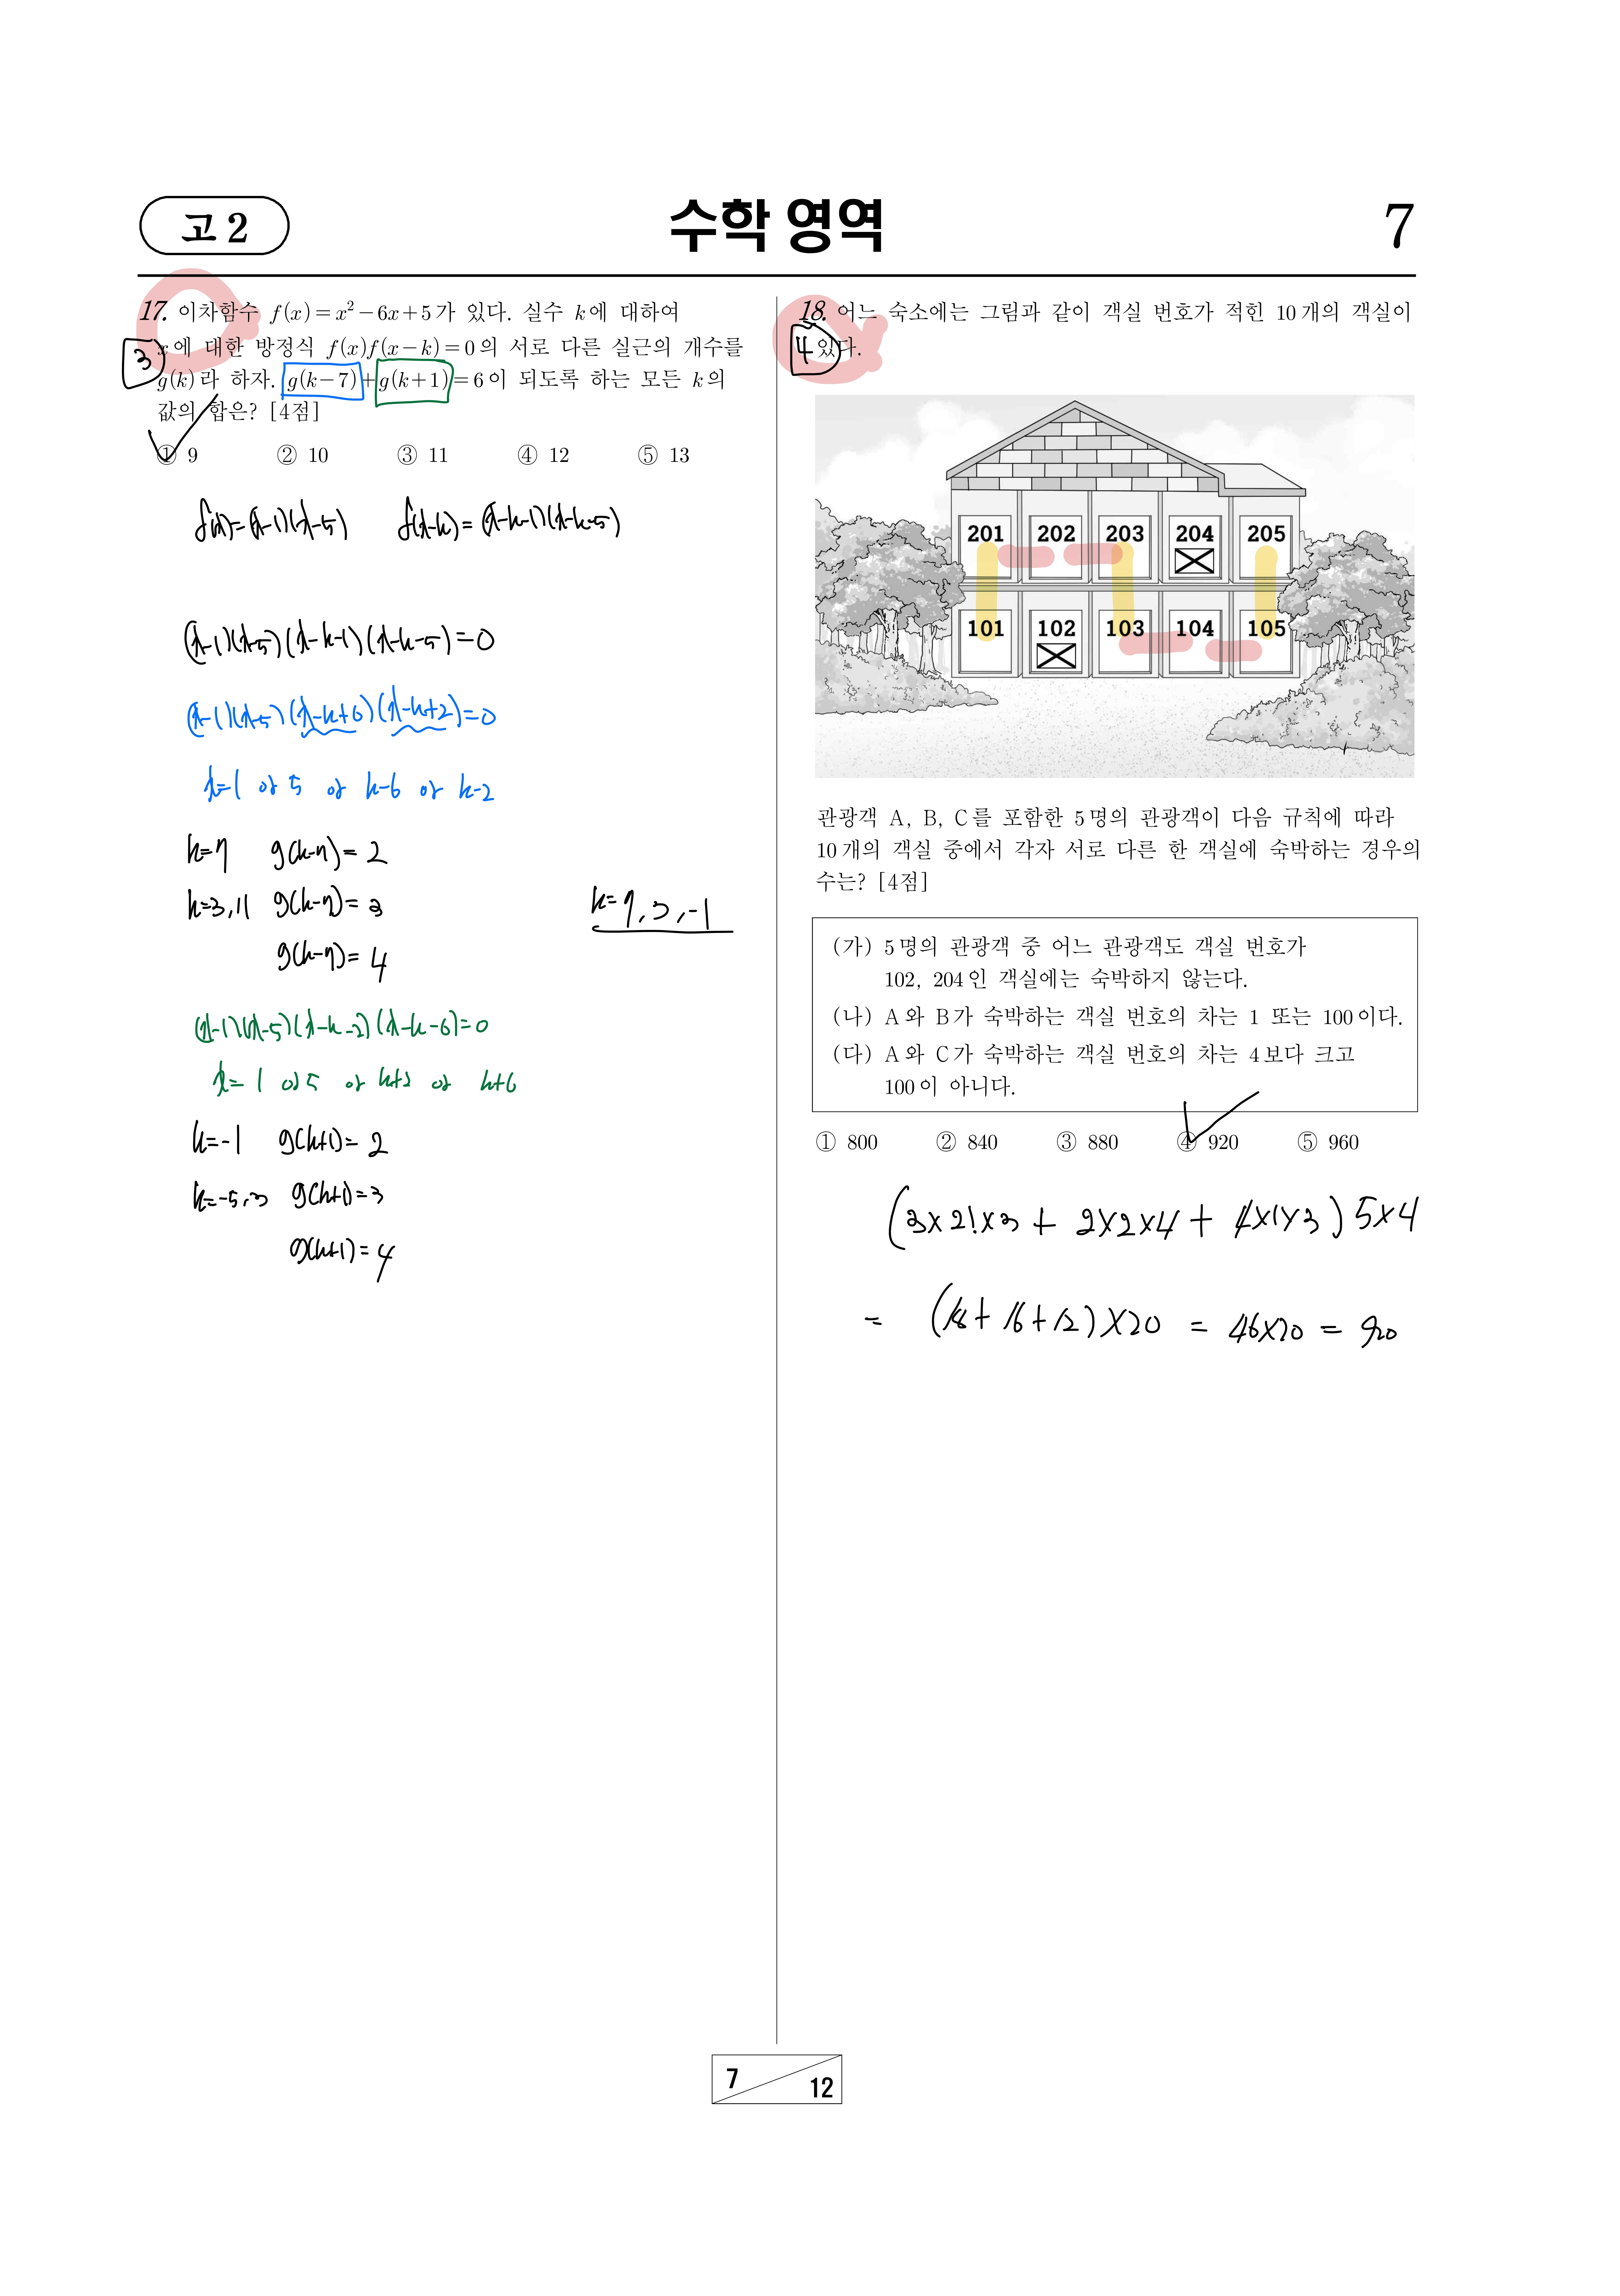 고 2
수학 영역
7
17. 이차함수 f(x)=x²-6x+5가 있다. 실수 k에 대하여
x에 대한 방정식 f(x)f(x-k)=0의 서로 다른 실근의 개수를
3
g(k)라 하자. g(k-7)+g(k+1)=6이 되도록 하는 모든 k의
값의 합은? [4점]
① 9 ② 10 ③ 11 ④ 12 ⑤ 13
f(x)=(x-1)(x-5) f(x-k)=(x-k-1)(x-k-5)
(x-1)(x-5)(x-k-1)(x-k-5)=0
(x-1)(x-5)(x-k+6)(x-k+2)=0
x=1 or 5 or k-6 or k-2
k=7 g(k-7)=2
k=3,11 g(k-7)=3
g(k-7)=4
k=7,3,-1
(x-1)(x-5)(x-k-2)(x-k-6)=0
x=1 or 5 or k+2 or k+6
k=-1 g(k+1)=2
k=-5,3 g(k+1)=3
g(k+1)=4
18. 어느 숙소에는 그림과 같이 객실 번호가 적힌 10개의 객실이
4
있다.
201 202 203 204 205
101 102 103 104 105
관광객 A, B, C를 포함한 5명의 관광객이 다음 규칙에 따라
10개의 객실 중에서 각자 서로 다른 한 객실에 숙박하는 경우의
수는? [4점]
(가) 5명의 관광객 중 어느 관광객도 객실 번호가
102, 204인 객실에는 숙박하지 않는다.
(나) A와 B가 숙박하는 객실 번호의 차는 1 또는 100이다.
(다) A와 C가 숙박하는 객실 번호의 차는 4보다 크고
100이 아니다.
① 800 ② 840 ③ 880 ④ 920 ⑤ 960
(3×2!×3 + 2×2×4 + 4×1×3) 5×4
= (18+16+12)×20 = 46×20 = 920
7
12